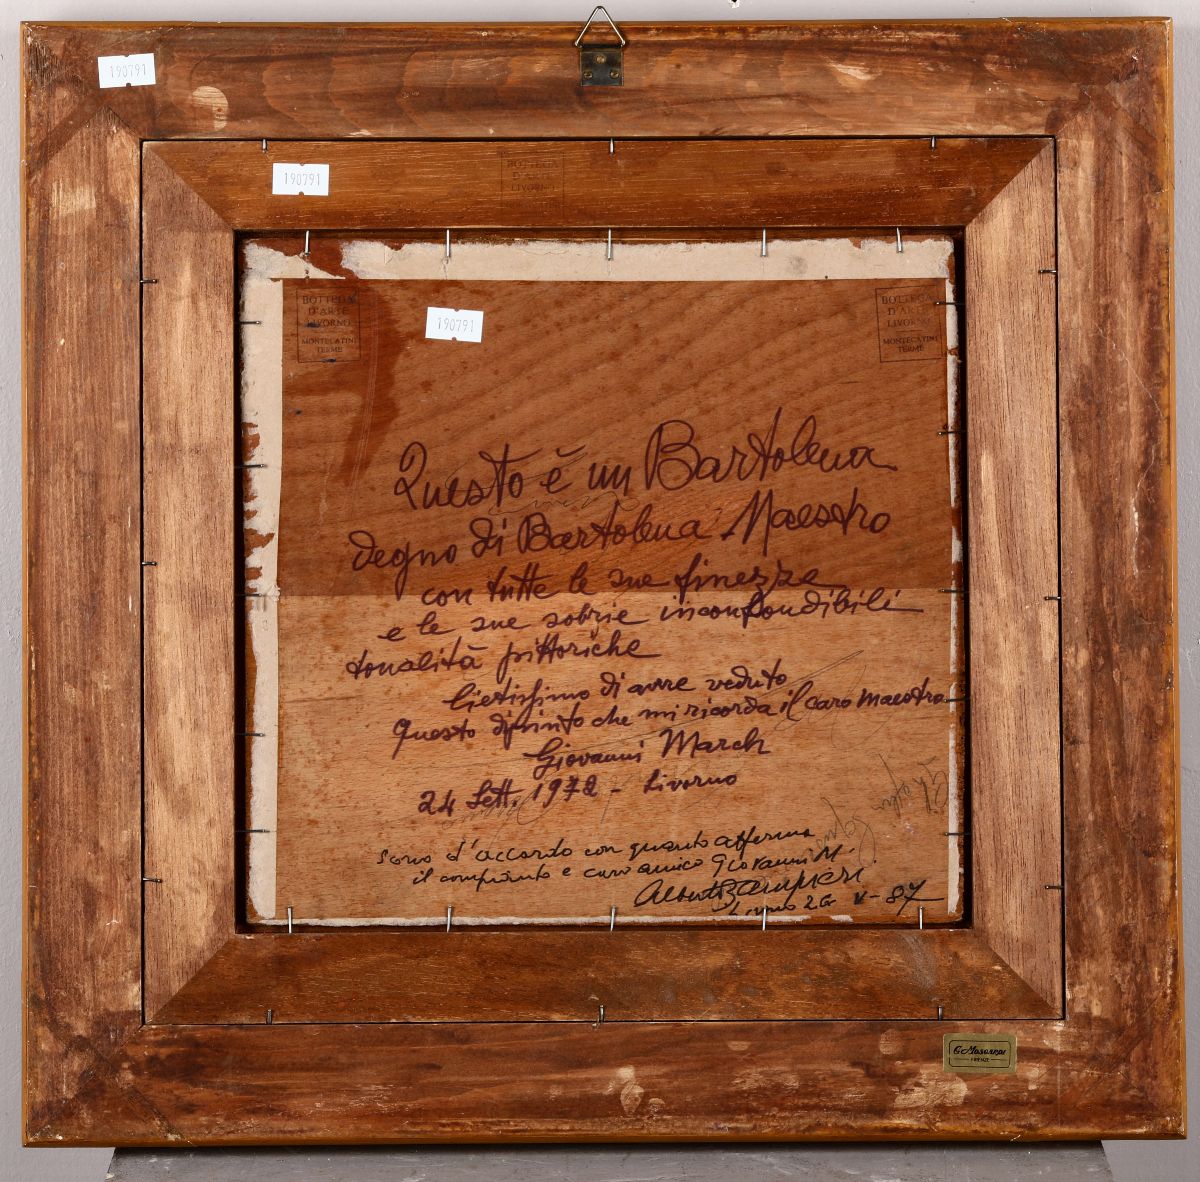 190791
190791
BOTTEGA
D'ARTE
LIVORNO
BOTTEGA
D'ARTE
LIVORNO
MONTECATINI
TERME
190791
BOTTEGA
D'ARTE
LIVORNO
MONTECATINI
TERME
Questo è un Bartolena
degno di Bartolena Maestro
con tutte le sue finezze
e le sue sobrie inconfondibili
tonalità pittoriche
lietissimo di avere veduto
Questo dipinto che mi ricorda il caro Maestro
Giovanni March
24 Sett. 1972 - Livorno
Sono d'accordo con quanto afferma
il compianto e caro amico Giovanni M.
Alberto Zampieri
Livorno 26 V-87
FIRENZE